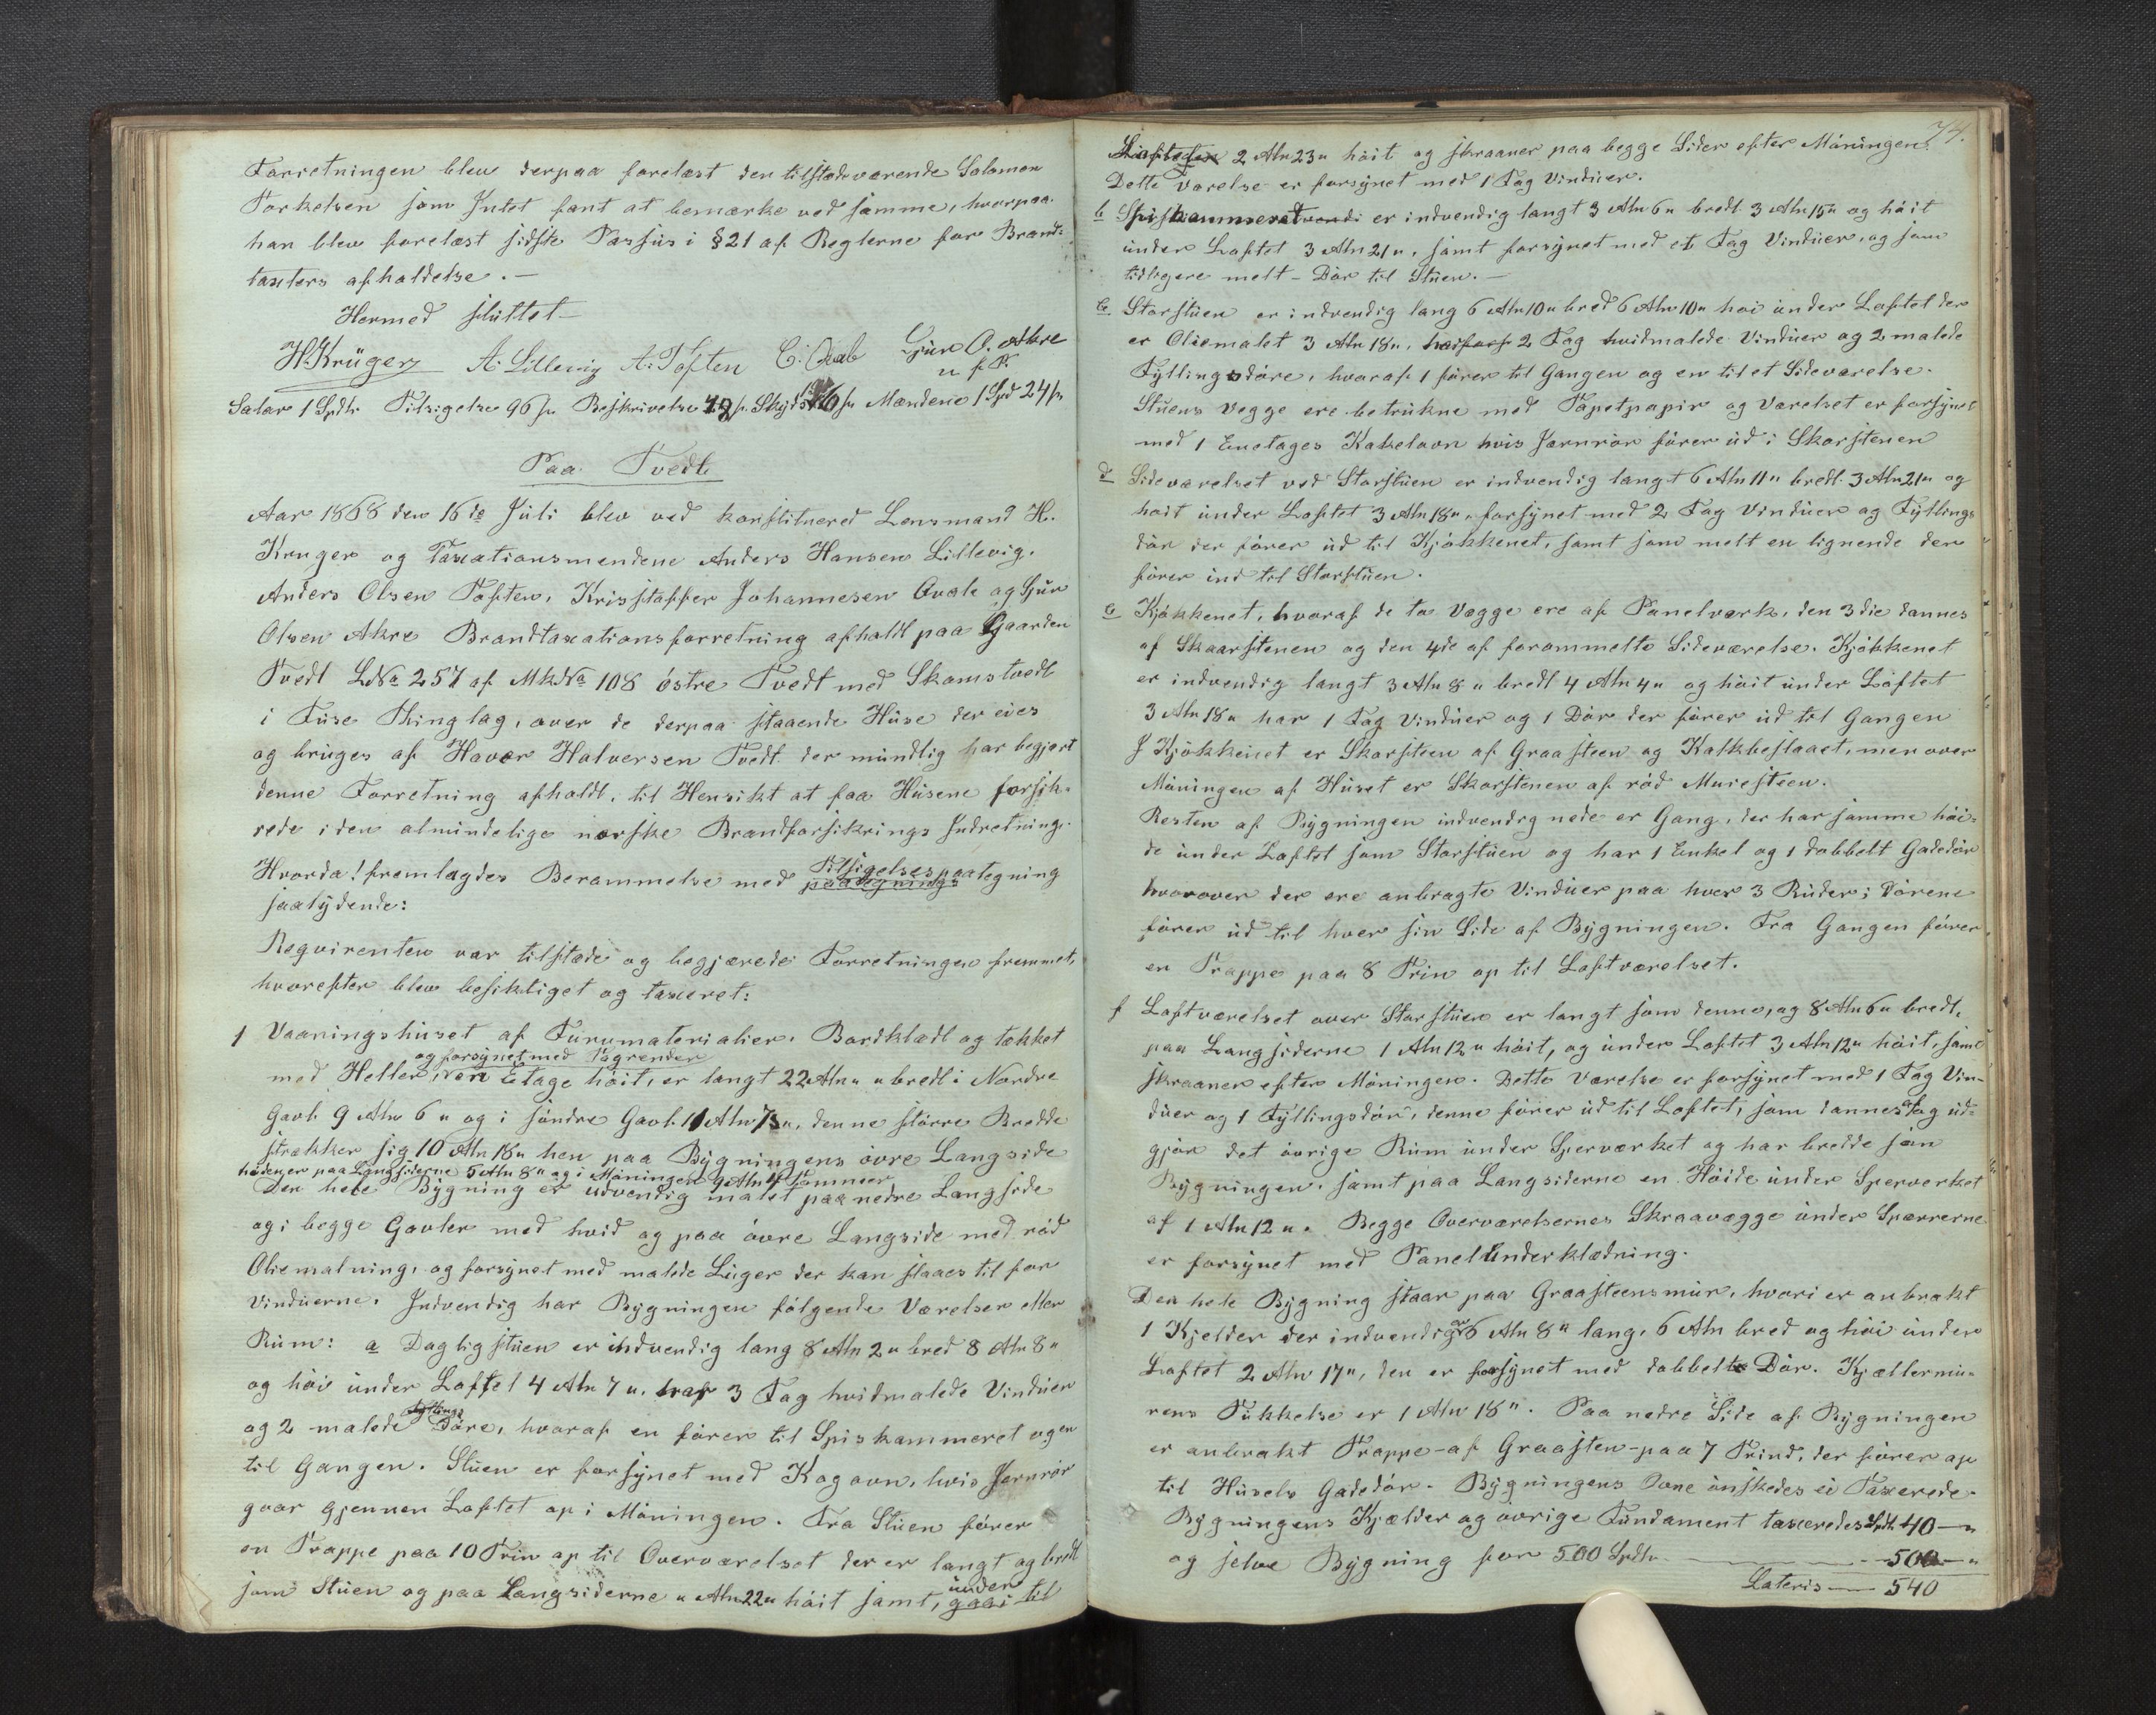 Forretningen blev derpaa forelæst den tilstædeværende Salomon
Torkelsen som Intet fant at bemærke ved samme, hvorpaa
han blev forelæst sidste Passus i § 21 af Reglerne for Brand-
taxters afholdelse. —
Hermed sluttet —
H. Krüger A. Lillevig A. Toften C. Qvale Gjur O. Akre
m f P.
Salær 1 Spdlr Tilsigelse 96 s Beskrivelse 48 s Skyds 16 s Mændene 1 Spd 24 s
Paa Tvedt
Aar 1868 den 16de Juli blev ved konstitueret Lensmand H.
Kruger og Taxationsmændene Anders Hansen Lillevig,
Anders Olsen Toften, Kristoffer Johannesen Qvale og Gjur
Olsen Akre Brandtaxationsforretning afholdt paa Gaarden
Tvedt LNo 257 af MkNo 108 östre Tvedt med Skamstvedt
i Fuse Thinglag, over de derpaa staaende Huse der eies
og bruges af Haver Halversen Tvedt der mundlig har begjært
denne Forretning afholdt, til Hensikt at faa Husene forsik-
rede i den almindelige norske Brandforsikrings Indretning.
Hvorda! fremlagdes Berammelse med Tilsigelsespaategning
saalydende:
Reqvirenten var tilstæde og begjærede Forretningen fremmet,
hvorefter blev besiktiget og taxeret:
1 Vaaningshuset af Furumaterialier. Bordklædt og tækket
og forsynet med Tagrender
med Heller, en Etage höit, er langt 22 Aln " " bredt i Nordre
Gavl 9 Aln 6 " og i söndre Gavl 11 Aln 7 ". denne större Bredde
strækker sig 10 Aln 18 " hen paa Bygningens övre Langside
höiden er paa Langsiderne 5 Aln 8 " og i Möningen 9 Aln
Den hele Bygning er udvendig malet paa nedre Langside
og i begge Gavler med hvid og paa övre Langside med röd
Oliemalning, og forsynet med malede Luger der kan slaaes til for
Vinduerne. Indvendig har Bygningen fölgende Værelser eller
Rum: a Dagligstuen er indvendig lang 8 Aln 2 " bred 8 Aln 8 "
og höi under Loftet 4 Aln 7 ". har 3 Fag hvidmalede Vinduer
og 2 malede Fyllings Döre, hvoraf en förer til Spiskammeret og en
til Gangen. Stuen er forsynet med Kogovn, hvis Jernrör
gaar gjennem Loftet op i Möningen. Fra Stuen förer
en Trappe paa 10 Trin op til Overværelset der er langt og bredt
som Stuen og paa Langsiderne " Aln 22 " höit samt, under
74.
Loftet 2 Aln 23 " höit og skraaner paa begge Sider efter Möningen.
Dette Værelse er forsynet med 1 Fag Vinduer.
b Spiskammeret er indvendig langt 3 Aln 6 " bredt 3 Aln 15 " og höit
under Loftet 3 Aln 21 ", samt forsynet med et Fag Vinduer, og som
tidligere melt - Dör til Stuen. —
c Storstuen er indvendig lang 6 Aln 10 " bred 6 Aln 10 " höi under Loftet der
er Oliemalet 3 Aln 18 ". 2 Fag hvidmalede Vinduer og 2 malede
Fyllingsdöre, hvoraf 1 förer til Gangen og en til et Sideværelse.
Stuens Vægge ere betrukne med Tapetpapir og Værelset er forsynet
med 1 Enetages Kakelovn hvis Jærnrör förer ud i Skorstenen
d Sideværelset ved Storstuen er indvendig langt 6 Aln 11 " bredt 3 Aln 21 " og
höit under Loftet 3 Aln 18 ". forsynet med 2 Fag Vinduer og Fyllings
dör der förer ud til Kjökkenet, samt som melt en lignende der
förer ind til Storstuen.
e Kjökkenet, hvoraf de to Vægge ere af Panelværk, den 3die dannes
af Skaarstenen og den 4de af forommelte Sideværelse. Kjökkenet
er indvendig langt 3 Aln 8 " bredt 4 Aln 4 " og höit under Loftet
3 Aln 18 " har 1 Fag Vinduer og 1 Dör der förer ud til Gangen
I Kjökkenet er Skorsteen af Graasteen og Kalkbeslaaet, men over
Möningen af Huset er Skorstenen af röd Muresteen.
Resten af Bygningen indvendig nede er Gang, der har samme höi-
de under Loftet som Storstuen og har 1 Enkel og 1 dobbelt Gadedör
hvorover der ere anbragte Vinduer paa hver 3 Ruder; Dörene
förer ud til hver sin Side af Bygningen. Fra Gangen förer
en Trappe paa 8 Trin op til Loftværelset.
f Loftværelset over Storstuen er langt som denne, og 8 Aln 6 " bredt,
paa Langsiderne 1 Aln 12 " höit, og under Loftet 3 Aln 12 " höit, samt
skraaner efter Möningen. Dette Værelse er forsynet med 1 Fag Vin-
duer og 1 Fyllingsdör, denne förer ud til Loftet, som dannes af og ud-
gjör det övrige Rum under Sperværket og har bredde som
Bygningen, samt paa Langsiderne en Höide under Sperverket
af 1 Aln 12 ". Begge Overværelsernes Skraavægge under Spærrerne
er forsynet med Panelunderklædning.
Den hele Bygning staar paa Graasteensmur, hvori er anbrakt
1 Kjelder der indvendig er 6 Aln 8 " lang, 6 Aln bred og höi under
Loftet 2 Aln 17 ", den er forsynet med dobbelte Dör. Kjællermu-
rens Tükkelse er 1 Aln 18 ". Paa nedre Side af Bygningen
er anbrakt Trappe - af Graasten - paa 7 Trind, der förer op
til Husets Gadedör. Bygningens Ovne önskedes ei Taxerede.
Bygningens Kjælder og övrige Fundament taxeredes Spdlr 40 — "
og selve Bygning for 500 Spdlr — 500 — "
Lateris — 540